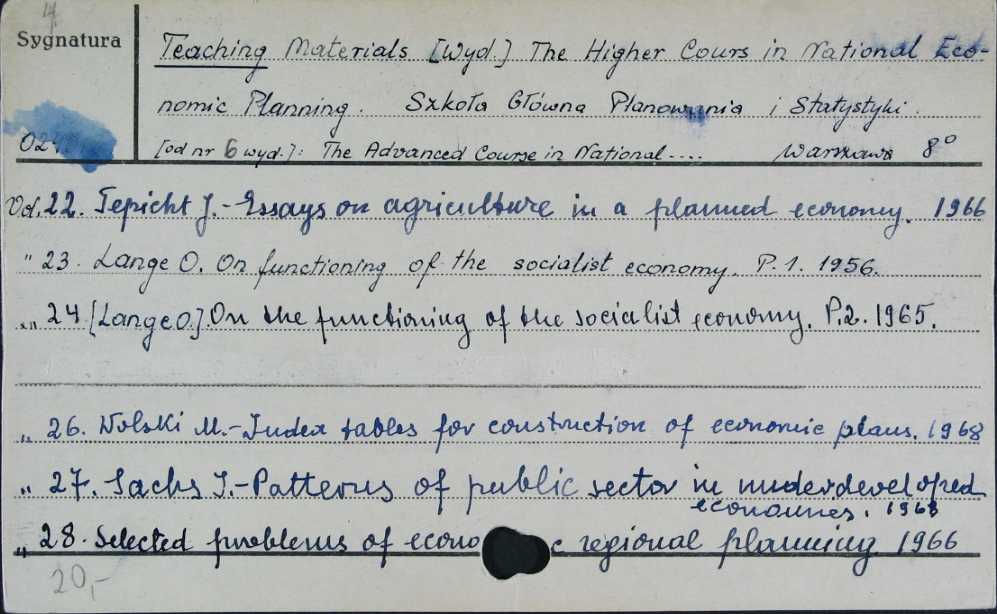 4.
Sygnatura
Teaching Materials [Wyd.] The Higher Cours in National Eco-
nomic Planning. Szkoła Główna Planowania i Statystyki.
[od nr 6 wyd.]: The Advanced Course in National.... Warszawa 8°
Vol. 22. Tepicht J.-Essays on agriculture in a planned economy. 1966
" 23. Lange O. On functioning of the socialist economy. P.1. 1956.
" 24 [Lange O.] On the functioning of the socialist economy. P.2. 1965.
" 26. Wolski M.-Index tables for construction of economic plans. 1968
" 27. Sachs I.-Patterns of public sector in underdeveloped
economies. 1968
" 28. Selected problems of econo c regional planning 1966
20,-